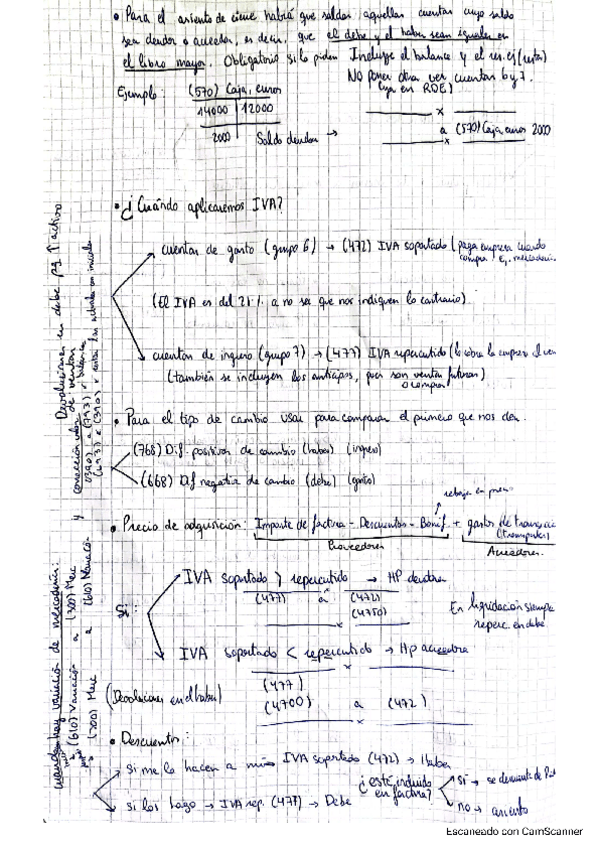 • Para el asiento de cierre habrá que saldar aquellas cuentas cuyo saldo
sea deudor o acreedor, es decir, que el debe y el haber sean iguales en
el libro mayor. Obligatorio si lo piden Incluye el balance y el
No poner otra vez cuentas 6 y 7.
Ejemplo: (570) Caja, euros
14000 | 12000
2000 Saldo deudor →
x
a (570) Caja, euros 2000
x
• ¿Cuándo aplicaremos IVA?
cuentas de gasto (grupo 6) → (472) IVA soportado (paga empresa cuando
compra Ej. mercaderías
(El IVA es del 21% a no ser que nos indiquen lo contrario)
cuentas de ingreso (grupo 7) → (477) IVA repercutido (lo cobra la empresa
(también se incluyen los anticipos, pues son ventas futuras)
o compras
• Para el tipo de cambio usar para comparar el primero que nos den.
(768) Dif. positivas de cambio (haber) (ingreso)
(668) Dif negativas de cambio (debe) (gasto)
rebaja en precio
• Precio de adquisición: Importe de factura - Descuentos - Bonif. + gastos de
(transportes)
Proveedores
Acreedores.
Si:
IVA soportado > repercutido → HP deudora
(477) a (472)
(4750)
x
En liquidación siempre
reperc. en debe
IVA soportado < repercutido → Hp acreedora
x
(Devoluciones en el haber)
(477)
(4700) a (472)
x
• Descuentos:
si me lo hacen a mí → IVA soportado (472) → Haber
si los hago → IVA rep. (477) → Debe
¿está incluido
en factura?
sí → se descuenta de
no → asiento
Cuando hay variación de mercaderías:
(610) Variación a (300) Merc
(300) Merc a (610) Variación
y
Devoluciones en debe